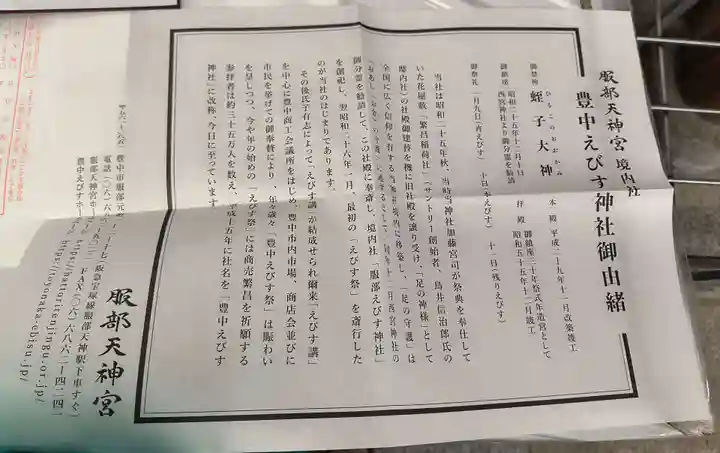 服部天神宮 境内社
豊中えびす神社御由緒
御祭神 蛭子大神
ひるこのおおかみ
本殿 平成二十九年十一月改築竣工
御鎮座 昭和二十五年十二月十日
西宮神社より御分霊を勧請
拝殿 御鎮座三十年祭式年造営として
昭和五十五年十二月竣工
御祭礼 一月九日(宵えびす) 十日(本えびす) 十一日(残りえびす)
当社は昭和二十五年秋、当時当神社加藤宮司が祭典を奉仕して
いた花屋敷「繁昌稲荷社」(サントリー創始者、鳥井信治郎氏の
邸内社)の社殿御建替を機に旧社殿を譲り受け、「足の神様」として
全国に広く信仰を有する当神社境内に移築し、「足の守護」は
西宮神社の
御分霊を勧請して、この社殿に奉斎し、境内社「服部えびす神社」
を創祀し、翌昭和二十六年一月、最初の「えびす祭」を斎行した
のが当社のはじまりであります。
その後氏子有志によって「えびす講」が結成せられ爾来「えびす講」
を中心に豊中商工会議所をはじめ、豊中市内市場、商店会並びに
市民を挙げての御奉賛により、年々歳々「豊中えびす祭」は賑わい
を呈しつつ、今や年の始めの「えびす祭」には商売繁昌を祈願する
参拝者は約三十五万人を数え、平成十五年に社名を「豊中えびす
神社」に改称、今日に至っています。
服部天神宮
豊中市服部元町
(阪急宝塚線服部天神駅下車すぐ)
電話(〇六) FAX(〇六)六八六二ー四二四一
服部天神宮ホームページ https://hattoritenjingu.or.jp/
豊中えびすホームページ https://toyonaka-ebisu.jp/